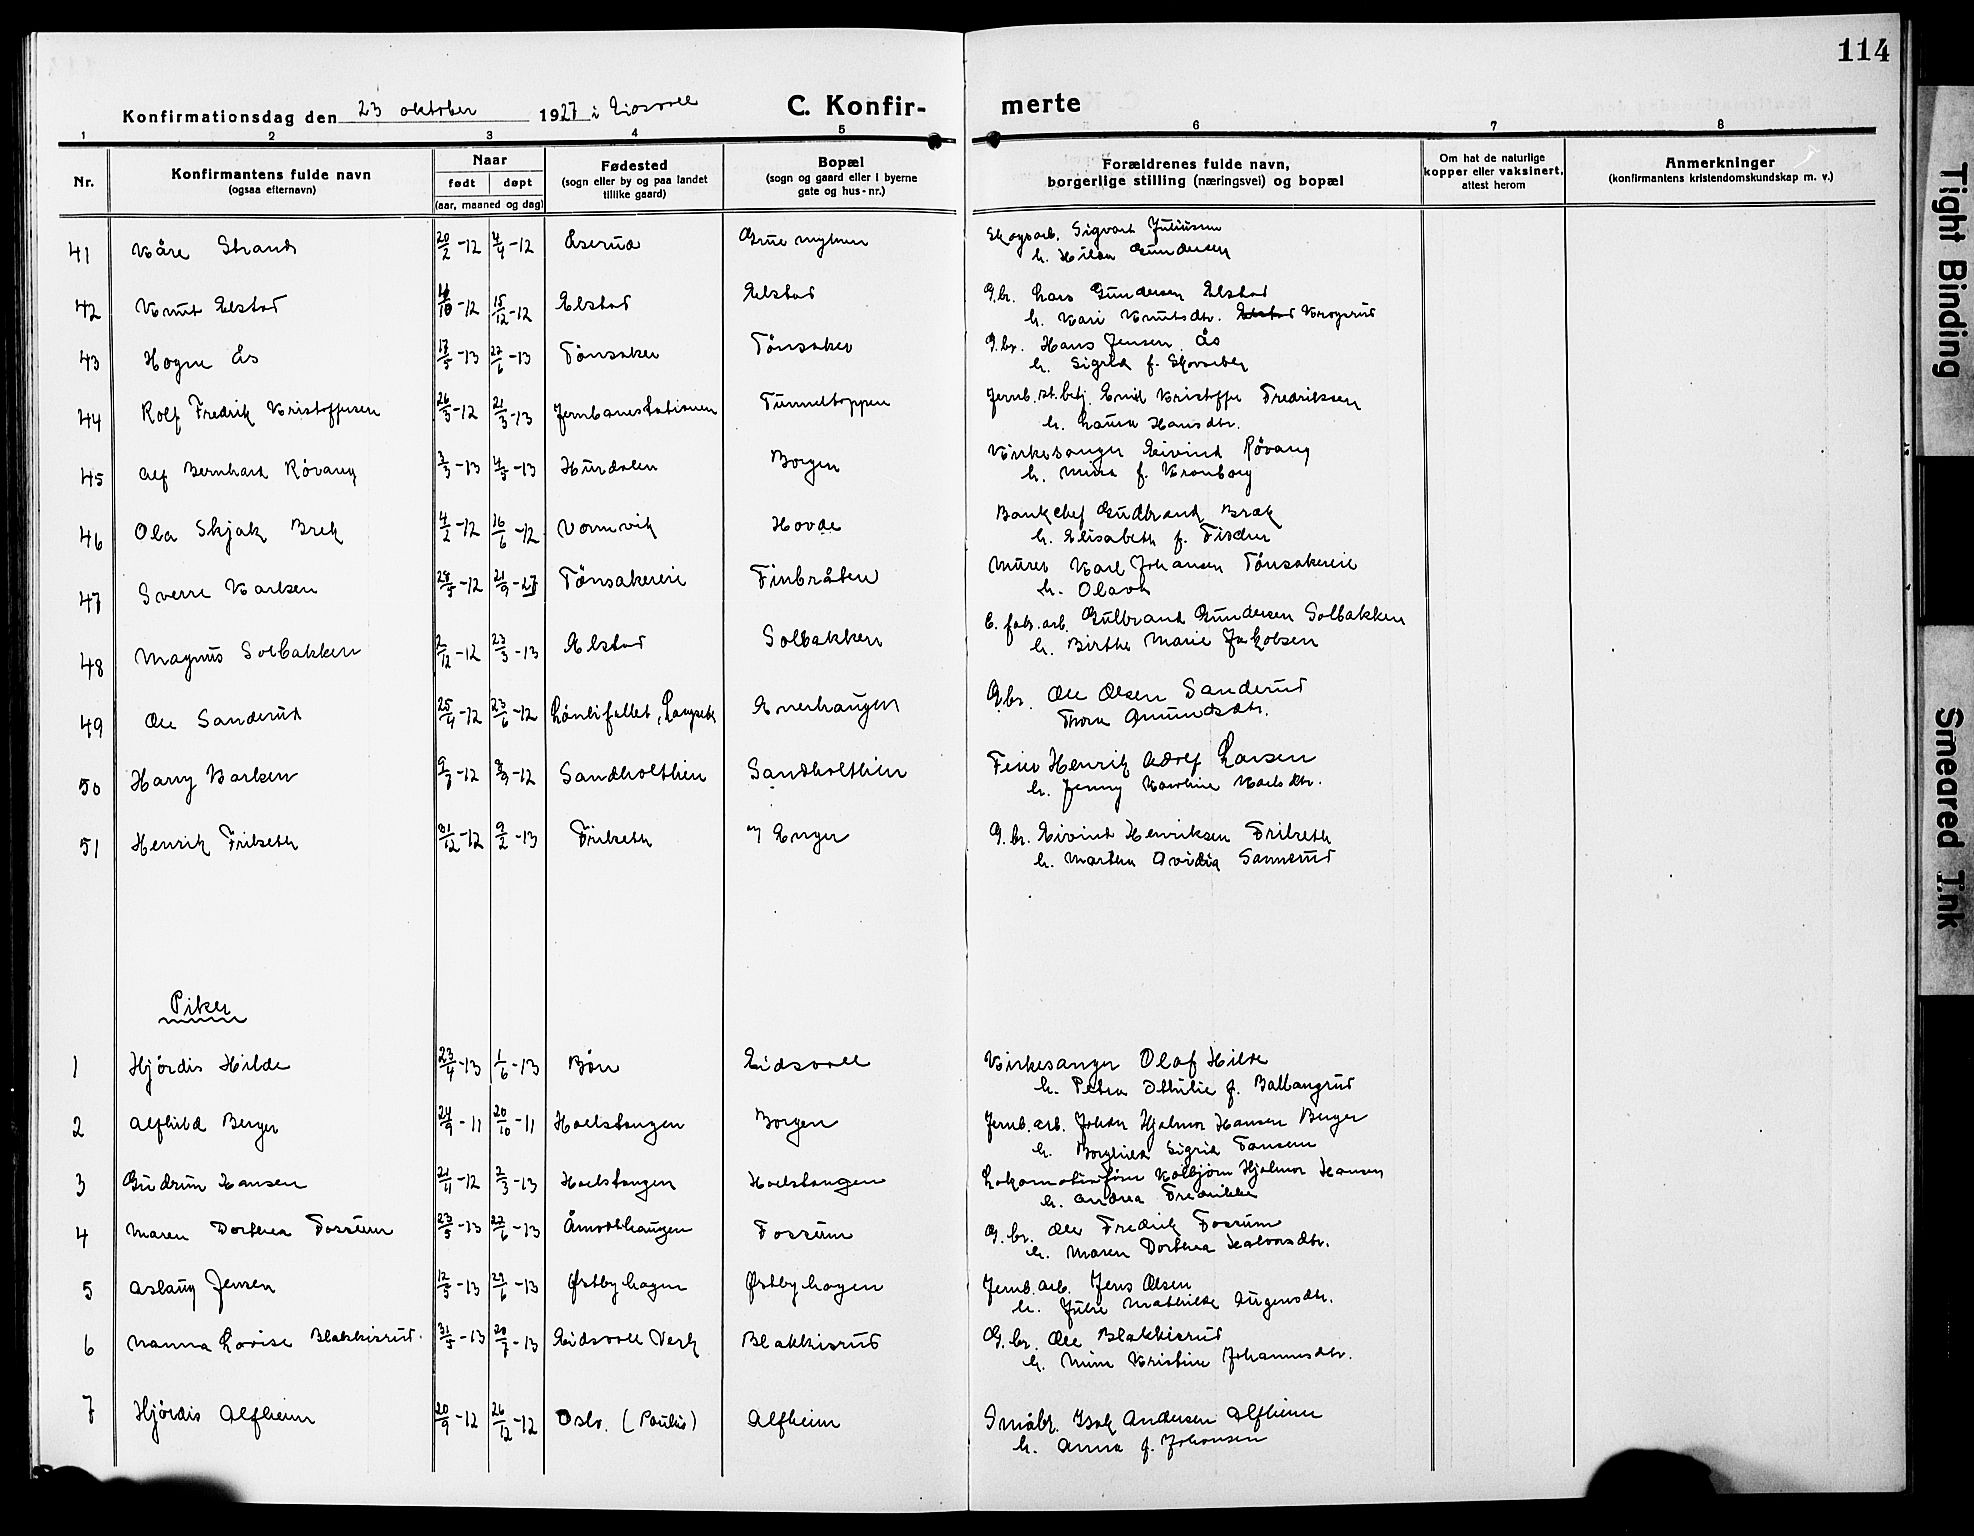 114
Konfirmationsdag den 23 oktober 1927 i Eidsvoll
C. Konfir-
merte
1 2 3 4 5 6 7 8
Nr.
Konfirmantens fulde navn
(ogsaa efternavn)
Naar
født døpt
(aar, maaned og dag)
Fødested
(sogn eller by og paa landet
tillike gaard)
Bopæl
(sogn og gaard eller i byerne
gate og hus-nr.)
Forældrenes fulde navn,
borgerlige stilling (næringsvei) og bopæl
Om hat de naturlige
kopper eller vaksinert,
attest herom
Anmerkninger
(konfirmantens kristendomskundskap m. v.)
41 Kåre Strand 20/2-12 4/4-12 Åserud Grue Skogsarb. Sigvart Juliussen
h. Hilda Gundersen
42 Knut Elstad 15/12-12 Elstad Elstad G.br. Lars Gundersen Elstad
h. Kari Knutsdtr. Elstad Krogsrud
43 Hogne Ås 17/5-13 22/6-13 Tønsaker Tønsaker G.br. Hans Jensen Ås
h. Sigrid f.
44 Rolf Fredrik Kristoffersen 26/5-12 21/3-13 Jernbanestationen Tunneltoppen Jernb.st.betj. Emil Kristoffer Fredriksen
h. Laura Hansdtr.
45 Alf Bernhard Røvang 3/3-13 4/5-13 Hurdalen Borgen Kirkesanger Eivind Røvang
h. Mina f. Kronborg
46 Ola Skjak Bræk 4/2-12 16/6-12 Vormvik Hovde Bankchef Gudbrand Bræk
h. Elisabeth f. Fischer
47 Sverre Karlsen 28/5-12 21/9-27 Tønsakereie Finbråten Murer Karl Johansen Tønsakereie
h. Olava
48 Magnus Solbakken 2/12-12 23/3-13 Elstad Solbakken C. fabr.arb. Gulbrand Gundersen Solbakken
h. Birthe Marie Jakobsen
49 Ole Sanderud 25/4-12 23/6-12 Lønlifallet, Langseth Enerhaugen G.br. Ole Olsen Sanderud
Thora Amundsdtr.
50 Harry Karlsen 9/7-12 8/9-12 Sandholthien Sandholthien Feier Henrik Adolf Larsen
h. Jenny Karoline Karlsdtr.
51 Henrik Frilseth 31/12-12 9/2-13 Frilseth Enger G.br. Eivind Henriksen Frilseth
h. Marthea Ovidia Sannerud
Piker
1 Hjørdis Hilde 23/4-13 1/6-13 Bøn Eidsvoll Kirkesanger Olaf Hilde
h. Petra Othilie f. Ballangrud
2 Alfhild Berger 24/9-11 20/10-11 Hoelstangen Borgen Jernb.arb. Johan Hjalmar Hansen Berger
h. Borghild Sigrid Hansen
3 Gudrun Hansen 21/11-12 2/3-13 Hoelstangen Hoelstangen Lokomotivfører Kolbjørn Hjalmar Hansen
h. Andrea Fredrikke
4 Maren Dorthea Fossum 23/5-13 22/6-13 Åmodthaugen Fossum G.br. Ole Fredrik Fossum
h. Maren Dorthea Halvorsdtr.
5 Aslaug Jensen 12/5-13 29/6-13 Østbyhagen Østbyhagen Jernb.arb. Jens Olsen
h. Julie Mathilde
6 Nanna Lovise Blakkisrud 31/5-13 20/7-13 Eidsvoll Verk Blakkisrud G.br. Ole Blakkisrud
h. Mina Kristine Johannesdtr.
7 Hjørdis Alfheim 20/9-12 26/12-12 Oslo. (Paulus) Alfheim Småbr. Isak Andersen Alfheim
h. Anna f. Johansen
Tight Binding
Smeared Ink